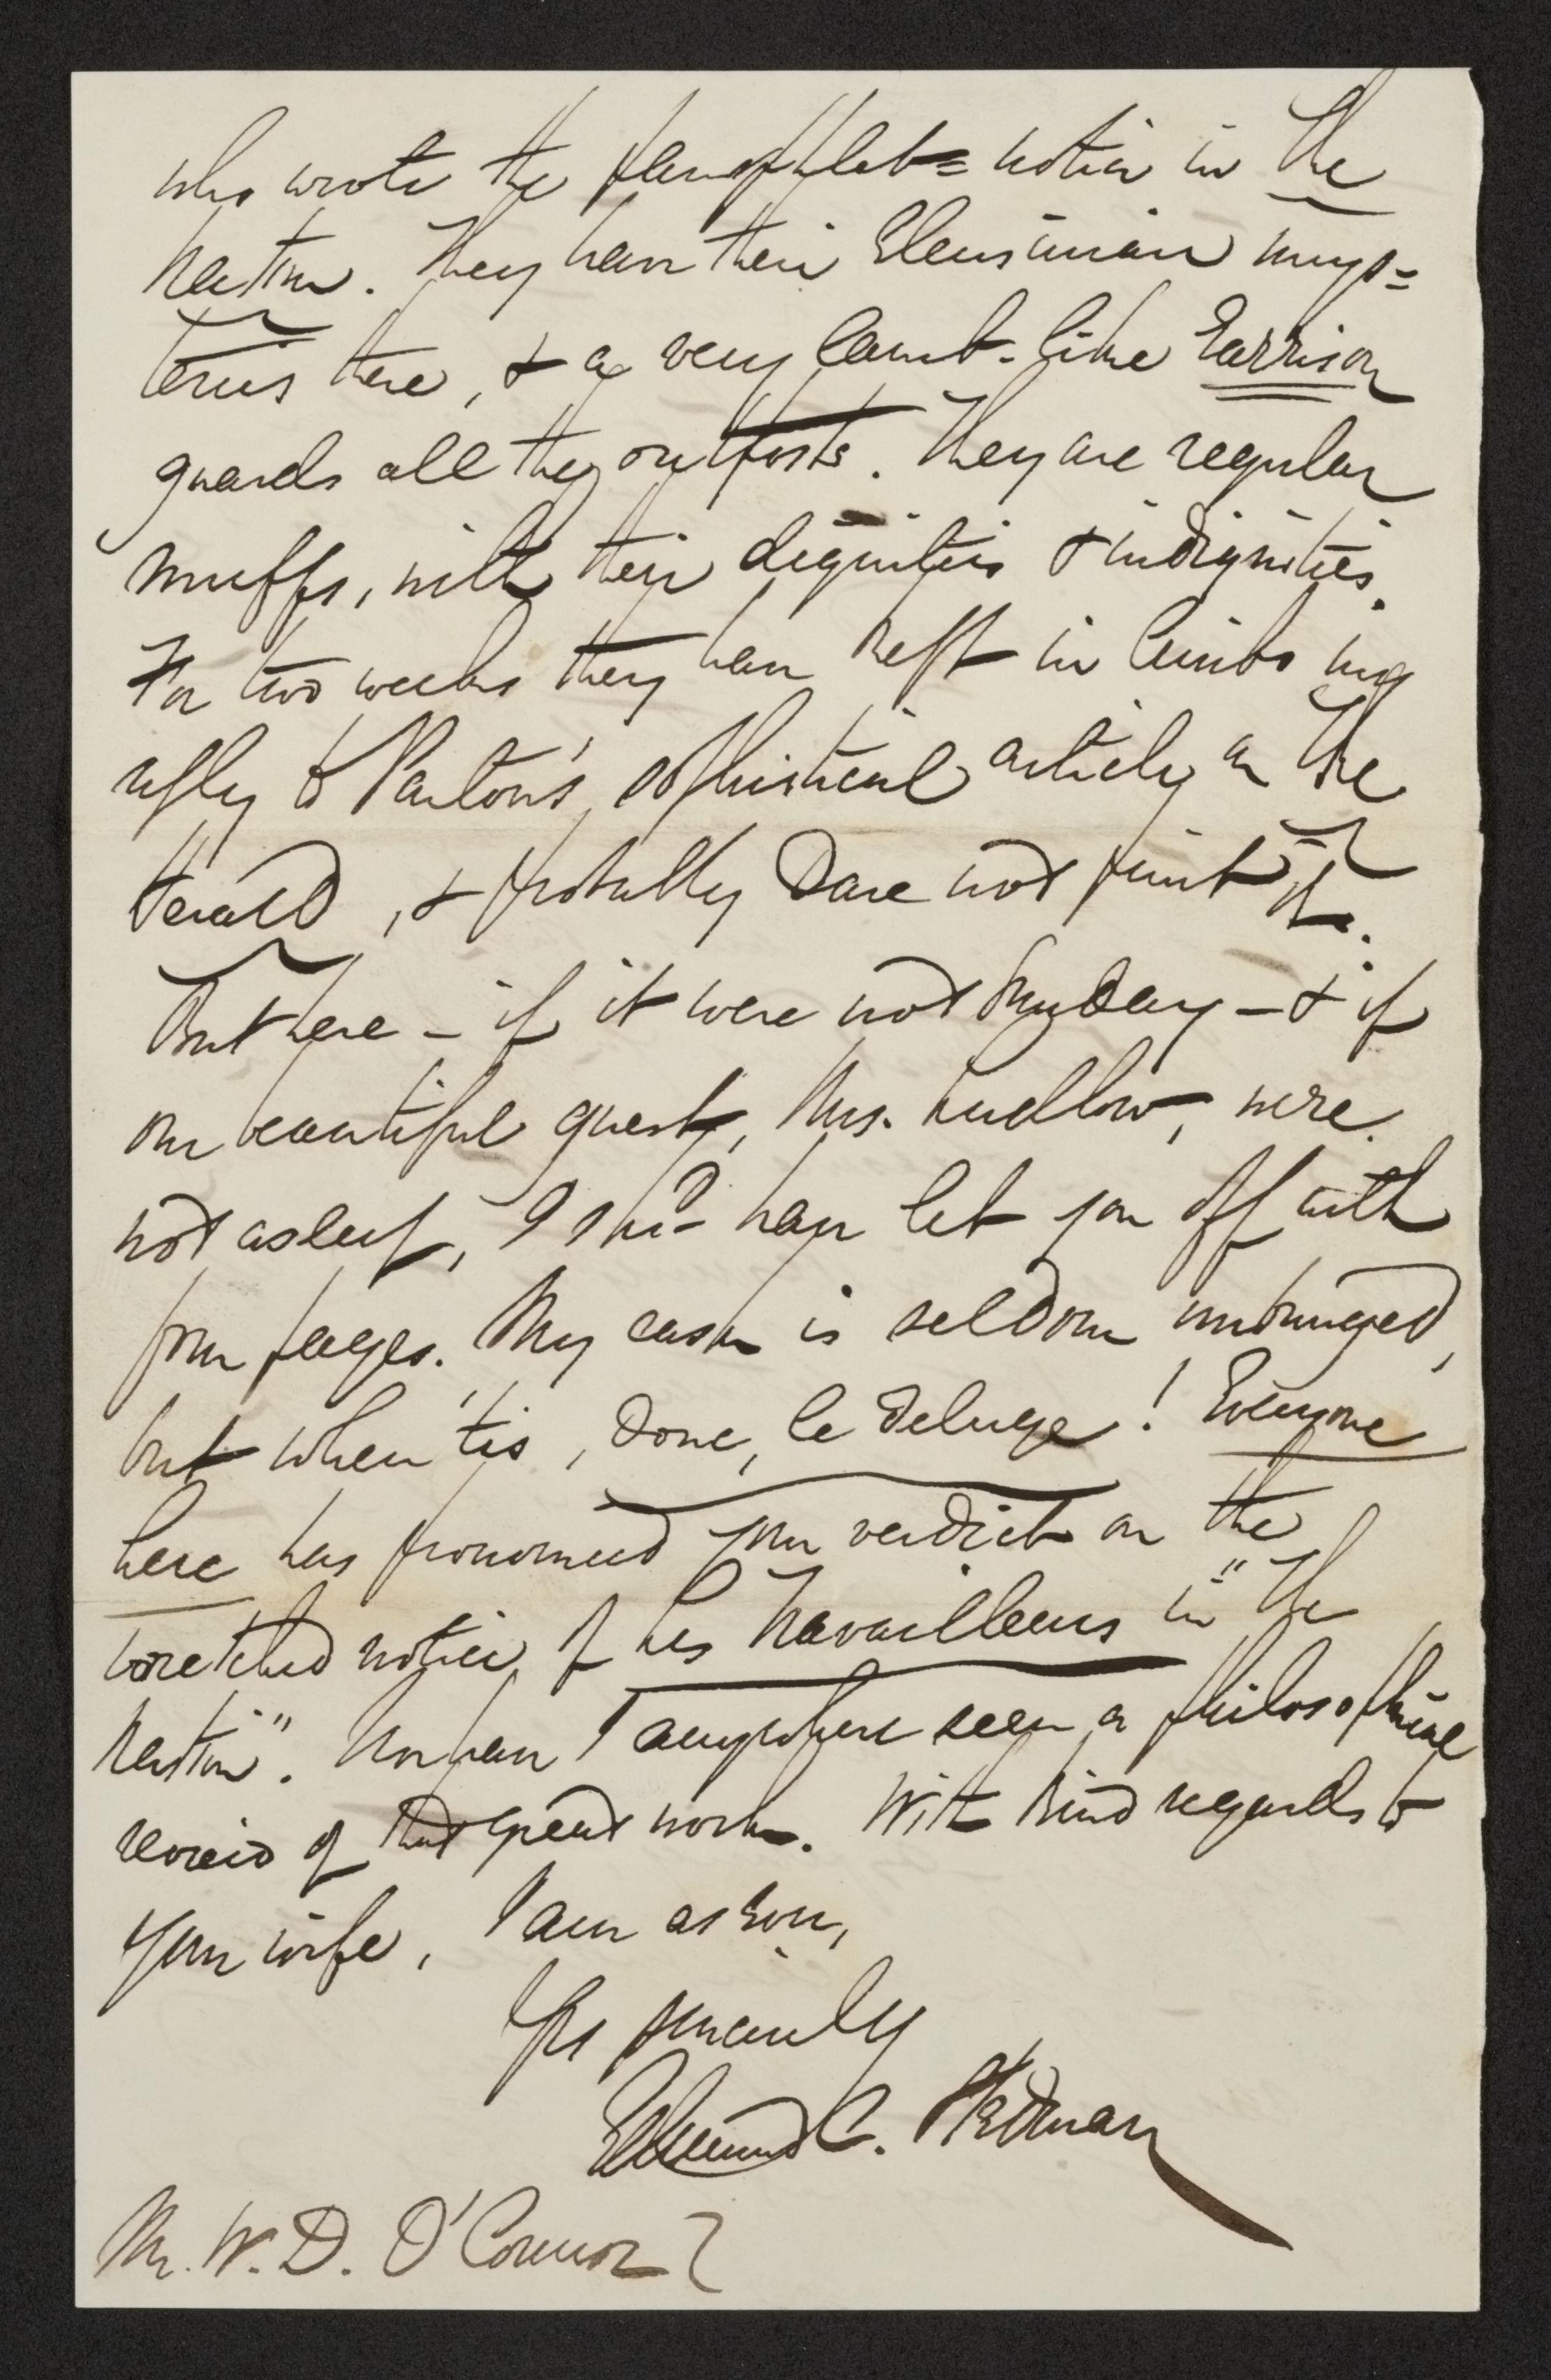 who wrote the pamphlet=notice in The
Nation. They have their Eleusinian mys=
teries there, & a very lamb-like Garrison
guards all the outposts. They are regular
muffs, with their dignities & indignities.
For two weeks they have kept in limbo my
reply to Parton's sophistical article on The
Herald, & probably dare not print it.
But here – if it were not Sunday – & if
our beautiful guest, Mrs. Ludlow, were
not asleep, I shd have let you off with
four pages. My cask is seldom unbunged,
but when 'tis, done, le deluge! Everyone
here has pronounced your verdict on the
wretched notice of Les Travailleurs in "The
Nation". Nor have I anywhere seen a philosophical
review of that great work. With kind regards to
your wife, I am as ever,
Yrs sincerely
Edmund C. Stedman
Mr. W. D. O'Connor